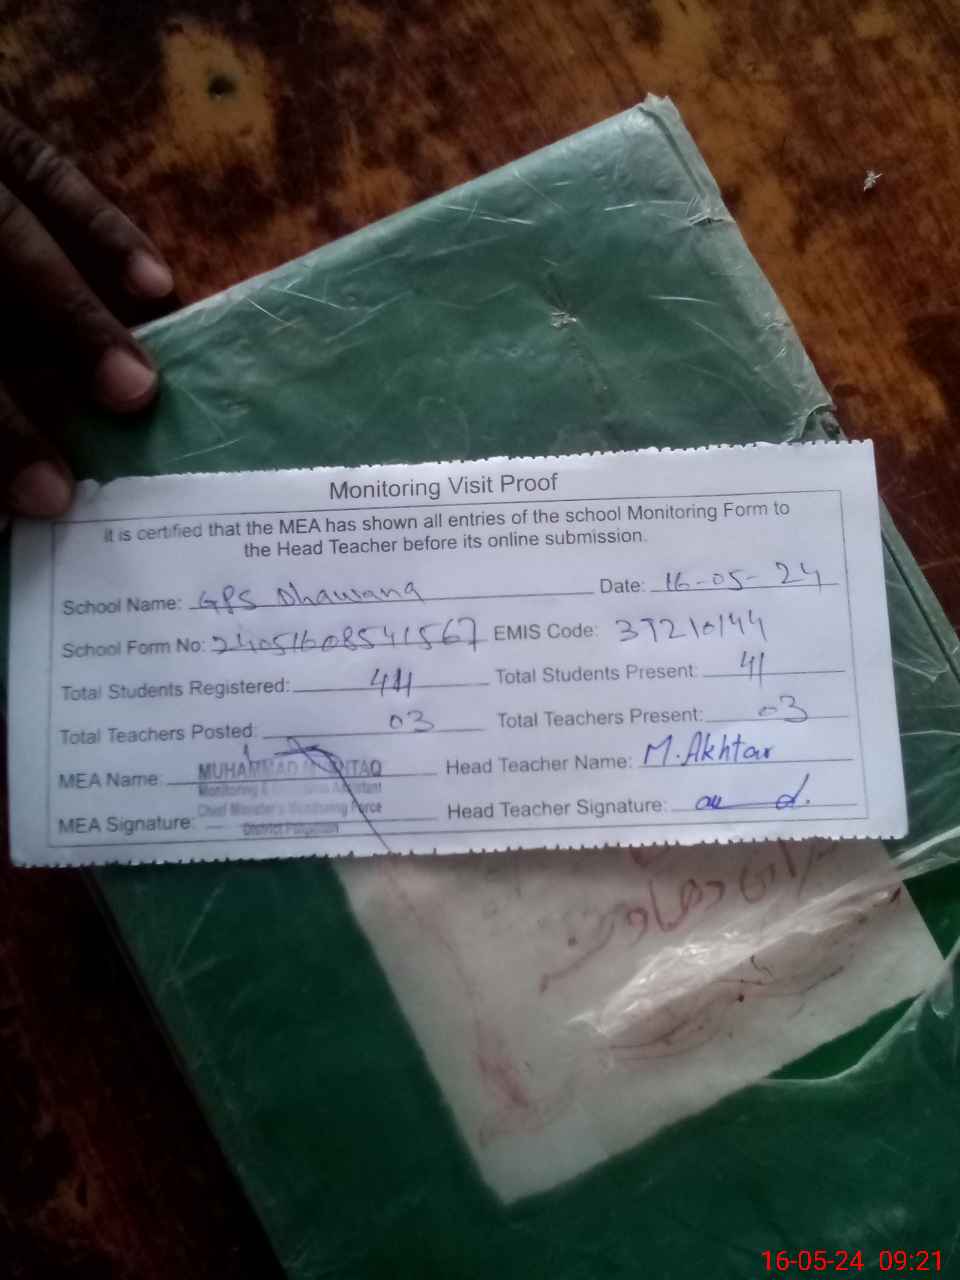 Monitoring Visit Proof
It is certified that the MEA has shown all entries of the school Monitoring Form to
the Head Teacher before its online submission.
School Name: GPS Dhawana Date: 16-05-24
School Form No: 24051608541567 EMIS Code: 37210144
Total Students Registered: 44 Total Students Present: 41
Total Teachers Posted: 03 Total Teachers Present: 03
MEA Name: MUHAMMAD Head Teacher Name: M. Akhtar
Monitoring & Assistant
Chief Minister's Monitoring Force
MEA Signature: District Head Teacher Signature:
16-05-24 09:21